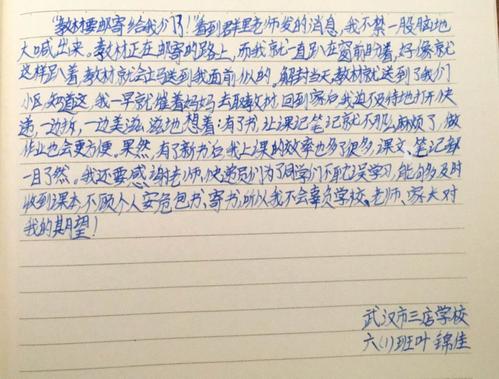 “教材要邮寄给我们了!”看到群里老师发的消息,我不禁一股脑地
大喊出来。教材正在邮寄的路上,而我就一直趴在窗前盼着,好像就
这样趴着,教材就会立马送到我面前似的。解封当天,教材就送到了我们
小区,知道这,我一早就催着妈妈去取教材,回到家后我迫不及待地打开快
递,一边拆,一边美滋滋地想着:有了书,上课记笔记就不那么麻烦了,做
作业也会更方便。果然,有了新书后,我上课的效率也多了很多,课文、笔记都
一目了然。我还要感谢老师,快递员们为了同学们不耽误学习,能够及时
收到课本,不顾个人安危包书、寄书,所以我不会辜负学校、老师、家长对
我的期望!
武汉市三店学校
六(1)班叶锦佳